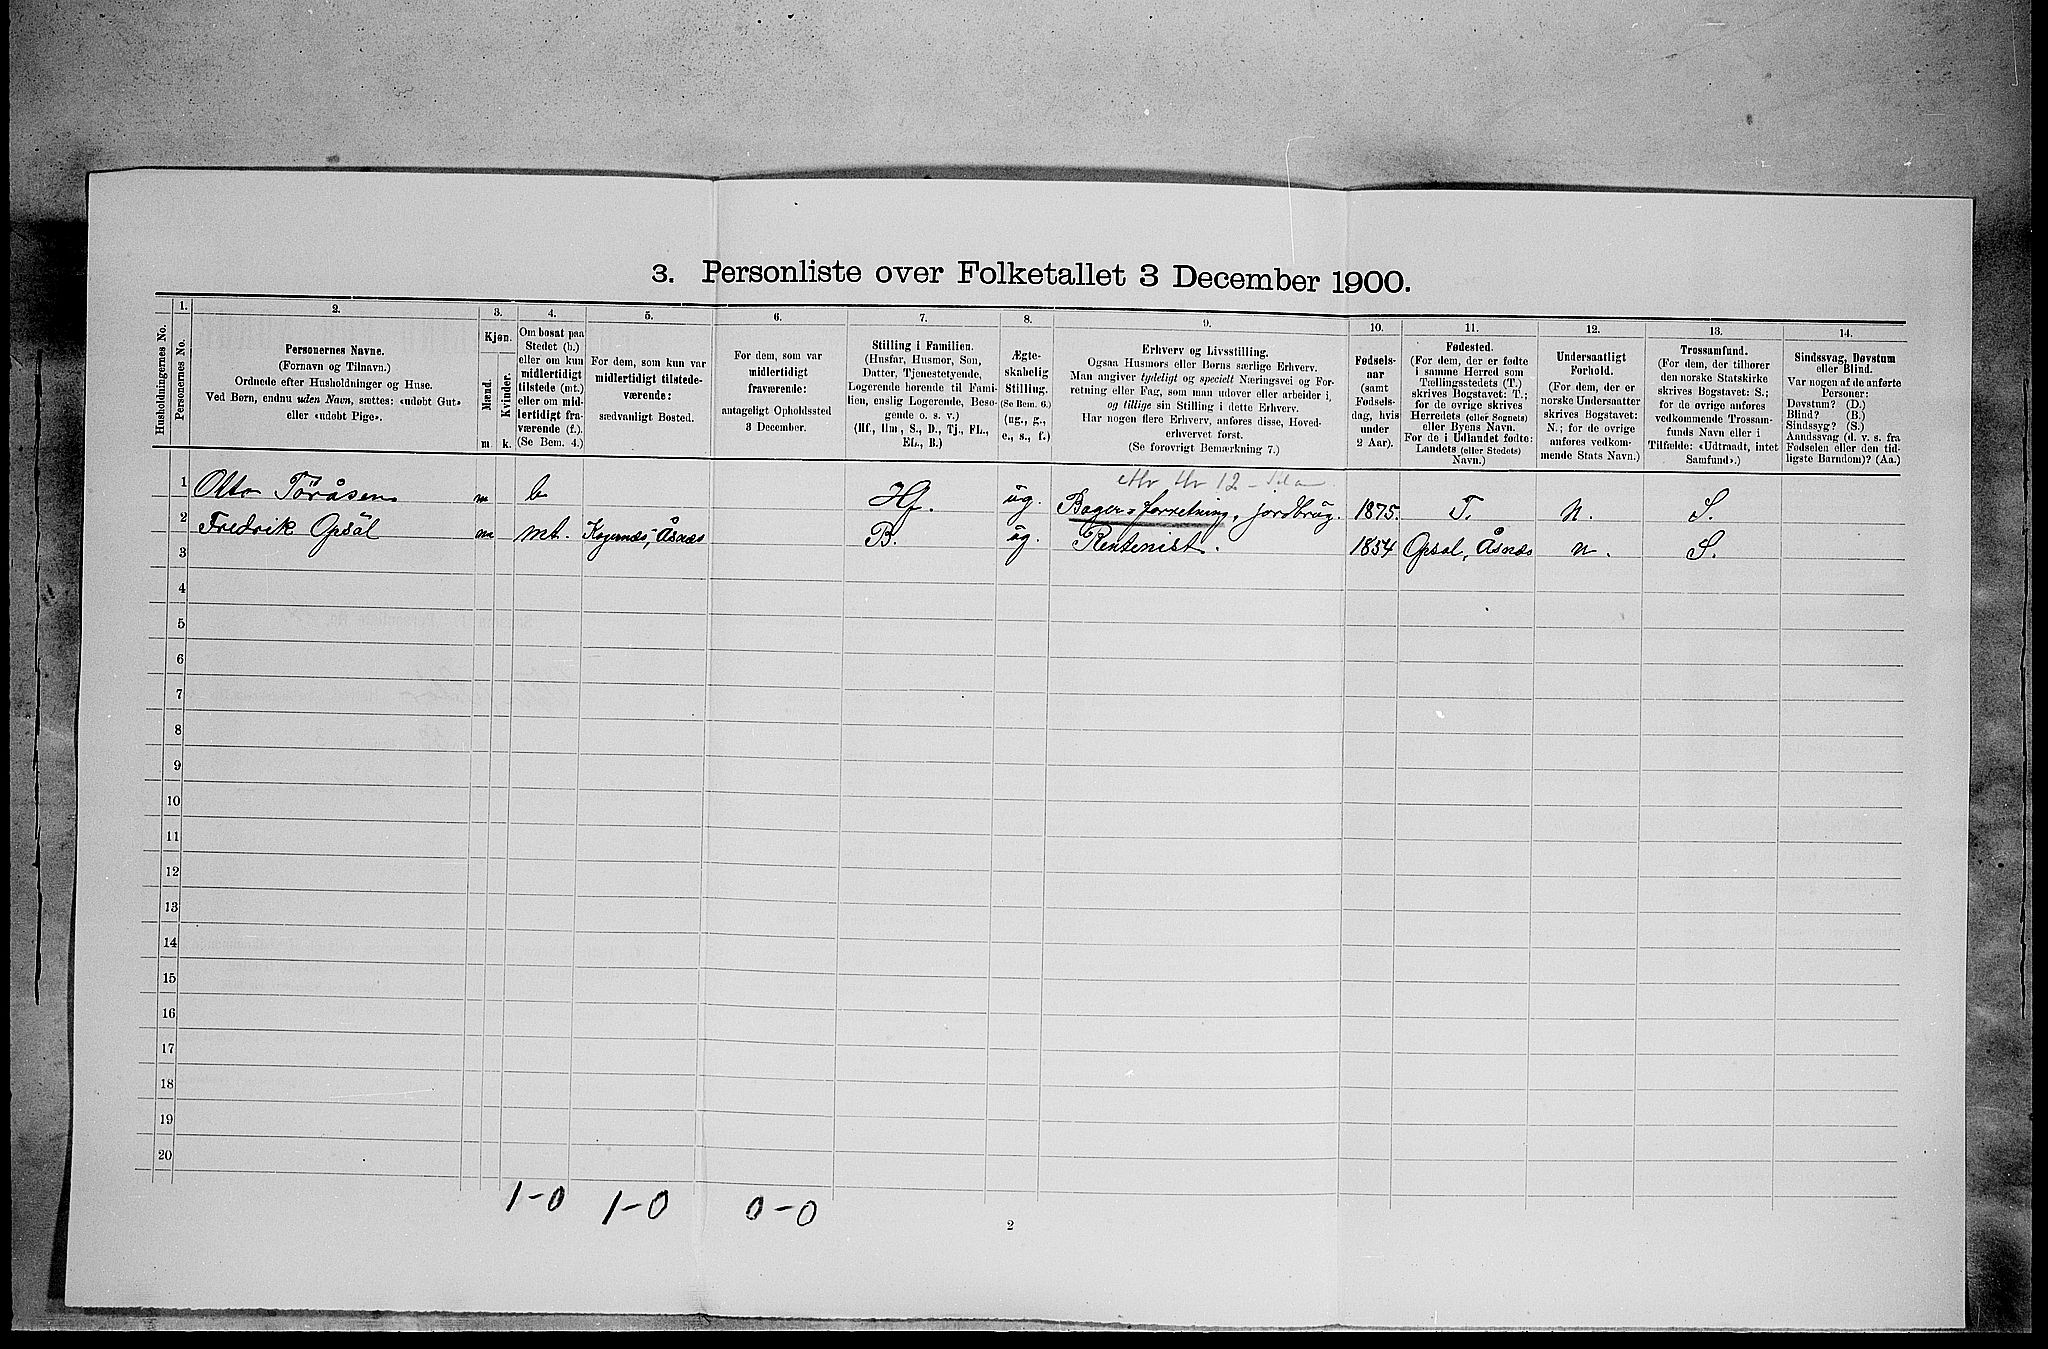 3. Personliste over Folketallet 3 December 1900.
Husholdningernes No.
1.
Personernes No.
2.
Personernes Navne.
(Fornavn og Tilnavn.)
Ordnede efter Husholdninger og Huse.
Ved Børn, endnu uden Navn, sættes: «udøbt Gut»
eller «udøbt Pige».
3.
Kjøn.
Mænd.
Kvinder.
m.
k.
4.
Om bosat paa
Stedet (b.)
eller om kun
midlertidigt
tilstede (mt.)
eller om mid-
lertidigt fra-
værende (f.).
(Se Bem. 4.)
5.
For dem, som kun var
midlertidigt tilstede-
værende:
sædvanligt Bosted.
6.
For dem, som var
midlertidigt
fraværende:
antageligt Opholdssted
3 December.
7.
Stilling i Familien.
(Husfar, Husmor, Søn,
Datter, Tjenestetyende,
Logerende hørende til Fami-
lien, enslig Logerende, Besø-
gende o. s. v.)
(Hf., Hm., S., D., Tj., FL.,
EL., B.)
8.
Ægte-
skabelig
Stilling.
(Se Bem. 6.)
(ug., g.,
e., s., f.)
9.
Erhverv og Livsstilling.
Ogsaa Husmors eller Børns særlige Erhverv.
Man angiver tydeligt og specielt Næringsvei og For-
retning eller Fag, som man udøver eller arbeider i,
og tillige sin Stilling i dette Erhverv.
Har nogen flere Erhverv, anføres disse, Hoved-
erhvervet først.
(Se forøvrigt Bemærkning 7.)
10.
Fødsels-
aar
(samt
Fødsels-
dag, hvis
under
2 Aar).
11.
Fødested.
(For dem, der er fødte
i samme Herred som
Tællingsstedets (T.)
skrives Bogstavet: T.;
for de øvrige skrives
Herredets (eller Sognets)
eller Byens Navn.
For de i Udlandet fødte:
Landets (eller Stedets)
Navn.)
12.
Undersaatligt
Forhold.
(For dem, der er
norske Undersaatter
skrives Bogstavet:
N.; for de øvrige
anføres vedkom-
mende Stats Navn.)
13.
Trossamfund.
(For dem, der tilhører
den norske Statskirke
skrives Bogstavet: S.;
for de øvrige anføres
vedkommende Trossam-
funds Navn eller i
Tilfælde: «Udtraadt, intet
Samfund».)
14.
Sindssvag, Døvstum
eller Blind.
Var nogen af de anførte
Personer:
Døvstum? (D.)
Blind? (B.)
Sindssyg? (S.)
Aandssvag (d. v. s. fra
Fødselen eller den tid-
ligste Barndom)? (Aa.)
12
1 Otto Töråsen m b Hf. ug. Bager=forretning, jordbrug. 1875. T. N. S.
2 Fredrik Opsål m mt. Kjernæs, Åsnæs B. ug. Rentenist. 1854 Opsal, Åsnæs N. S.
3
4
5
6
7
8
9
10
11
12
13
14
15
16
17
18
19
20
1-0 1-0 0-0
2